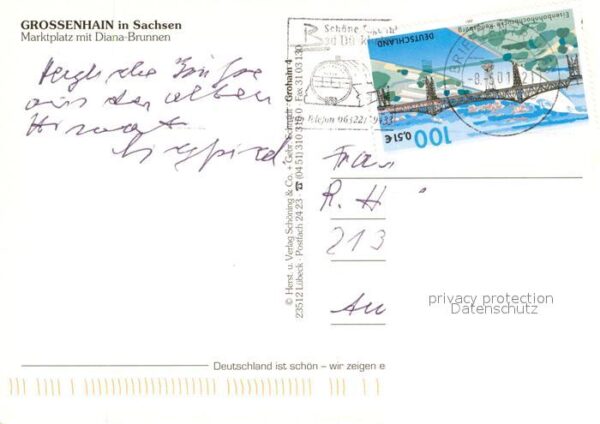 GROSSENHAIN in Sachsen
Marktplatz mit Diana-Brunnen
Herzliche Grüße
aus der alten
Heimat
Siegfried
© Herst. u. Verlag Schöning & Co. + Gebr. Schmidt · Grohain 4
23512 Lübeck · Postfach 24 23 · ☎ (04 51) 3 10 31 0 · Fax 31 03 130
Schöne
Bad Dürk
Telefon 06322/
BRIE
-8. 01.-21
Eisenbahnhochbrücke Rendsburg
DEUTSCHLAND
100
0,51€
Frau
R. H
213
Au
privacy protection
Datenschutz
Deutschland ist schön – wir zeigen e